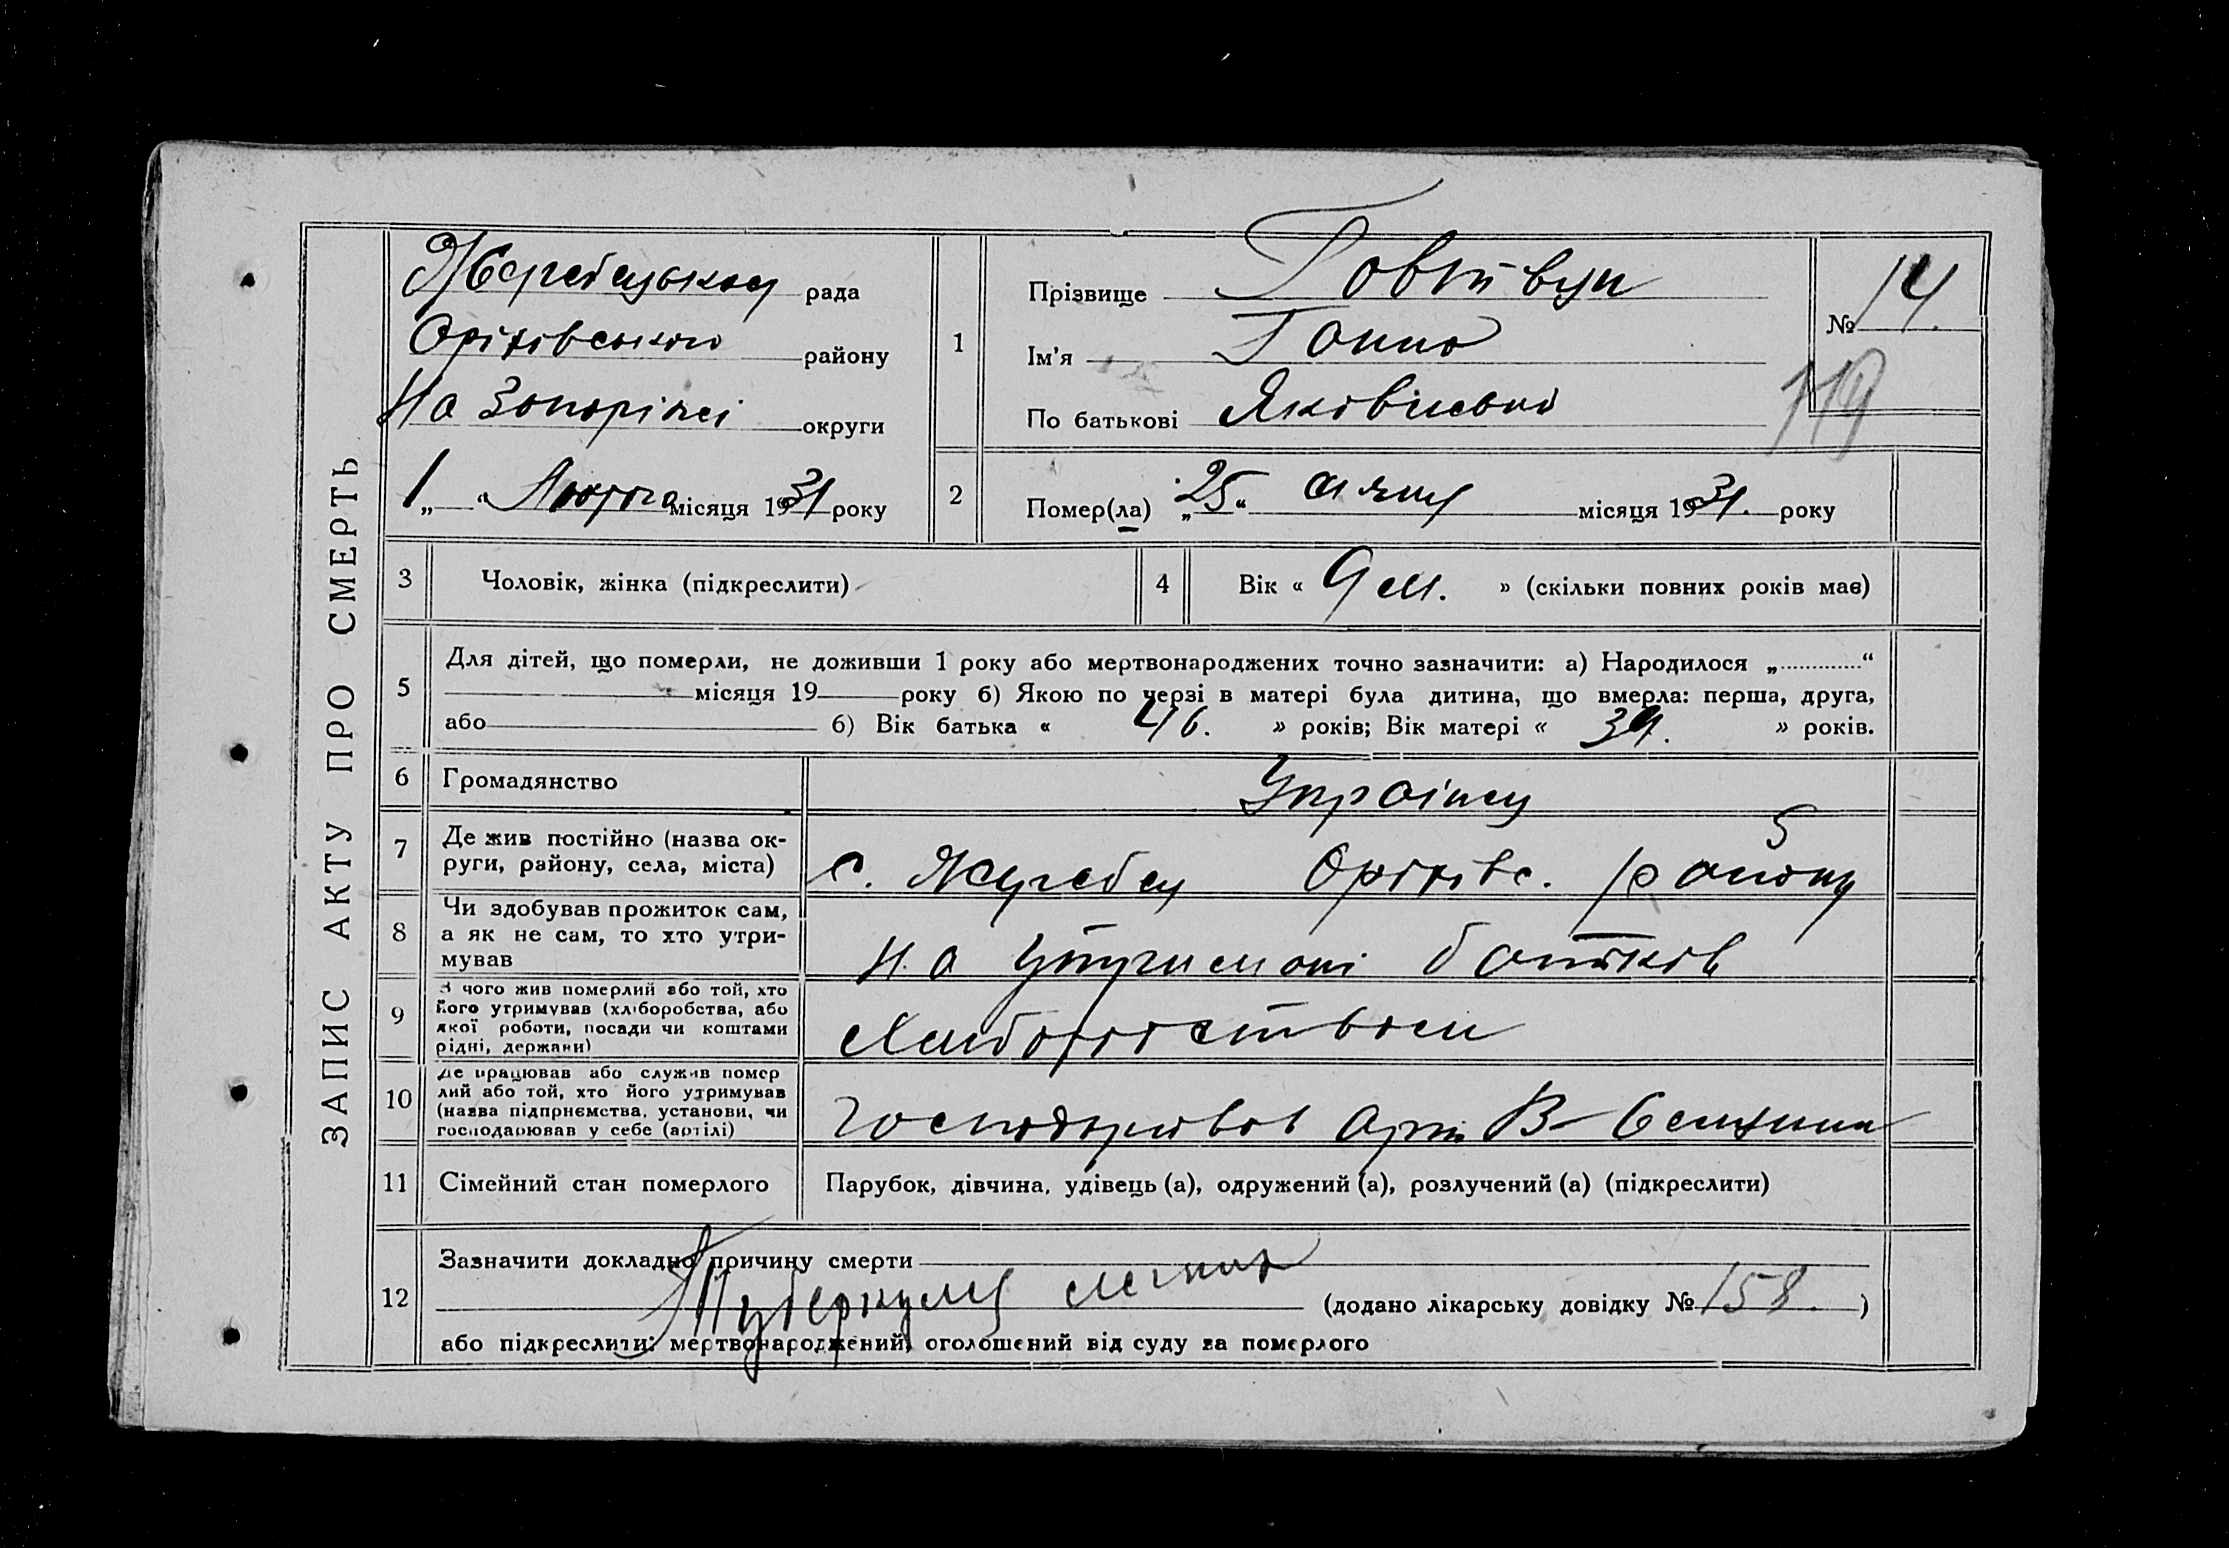 ЗАПИС АКТУ ПРО СМЕРТЬ
Жеребецької рада
Оріхівського району
На Запоріжі округи
1 „ “ Лютого місяця 1931 року
1
Прізвище Говтвян
Ім'я Ганна
По батькові Яківлевна
№ 14.
119
2
Помер(ла) „25“ січня місяця 1931. року
3 Чоловік, жінка (підкреслити)
4 Вік « 9 м. » (скільки повних років має)
5 Для дітей, що померли, не доживши 1 року або мертвонароджених точно зазначити: а) Народилося „ “
місяця 19 року б) Якою по черзі в матері була дитина, що вмерла: перша, друга,
або б) Вік батька « 46. » років; Вік матері « 39. » років.
6 Громадянство Украінец
7 Де жив постійно (назва ок-
руги, району, села, міста) с. Жеребец Оріхівс. району
8 Чи здобував прожиток сам,
а як не сам, то хто утри-
мував На утримані батьків
9 З чого жив померлий або той, хто
його утримував (хліборобства, або
якої роботи, посади чи коштами
рідні, держави) Хліборобством
10 Де працював або служив помер
лий або той, хто його утримував
(назва підприємства, установи, чи
господарював у себе (артілі) господарював Арт.
11 Сімейний стан померлого Парубок, дівчина, удівець (а), одружений (а), розлучений (а) (підкреслити)
12 Зазначити докладно причину смерти
Туберкульоз легких (додано лікарську довідку № 158. )
або підкреслити: мертвонароджений, оголошений від суду за померлого